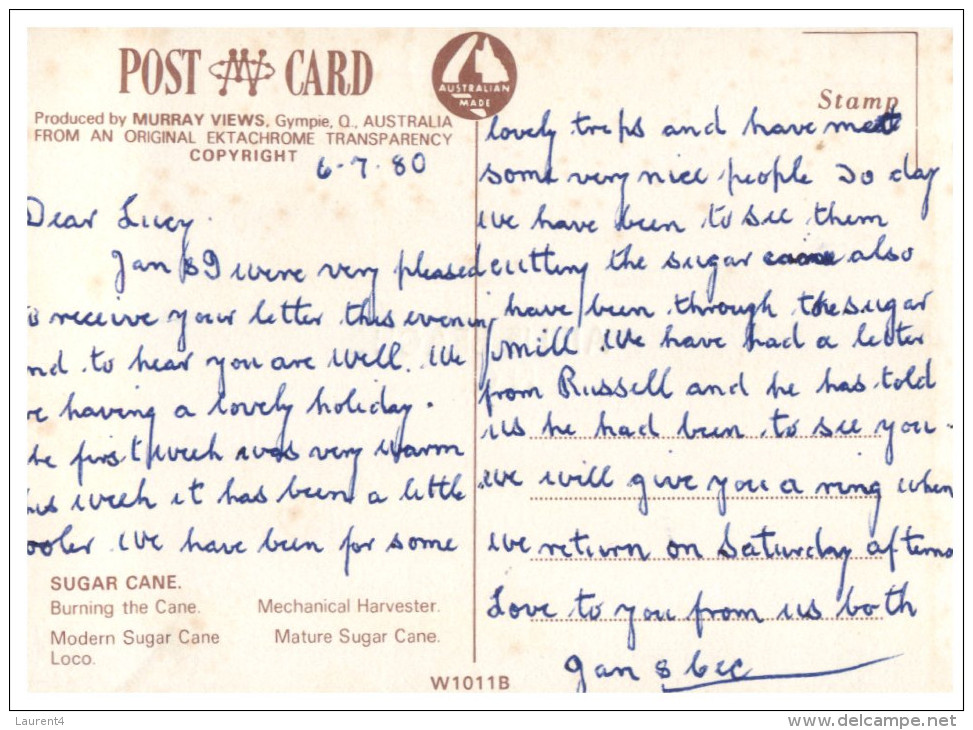 POST CARD
AUSTRALIAN
MADE
Produced by MURRAY VIEWS, Gympie, Q., AUSTRALIA
FROM AN ORIGINAL EKTACHROME TRANSPARENCY
COPYRIGHT
Stamp
6-7-80
Dear Lucy.
Jan & I were very pleased
to receive your letter this evening
nd to hear you are well. We
re having a lovely holiday.
he first week was very warm
his week it has been a little
ooler We have been for some
lovely trips and have met
some very nice people To day
we have been to see them
cutting the sugar cane also
have been through the sugar
mill We have had a letter
from Russell and he has told
us he had been to see you.
We will give you a ring when
we return on Saturday afterno
Love to you from us both
Jan & Cec
SUGAR CANE.
Burning the Cane. Mechanical Harvester.
Modern Sugar Cane Mature Sugar Cane.
Loco.
W1011B
Laurent4
www.delcampe.net